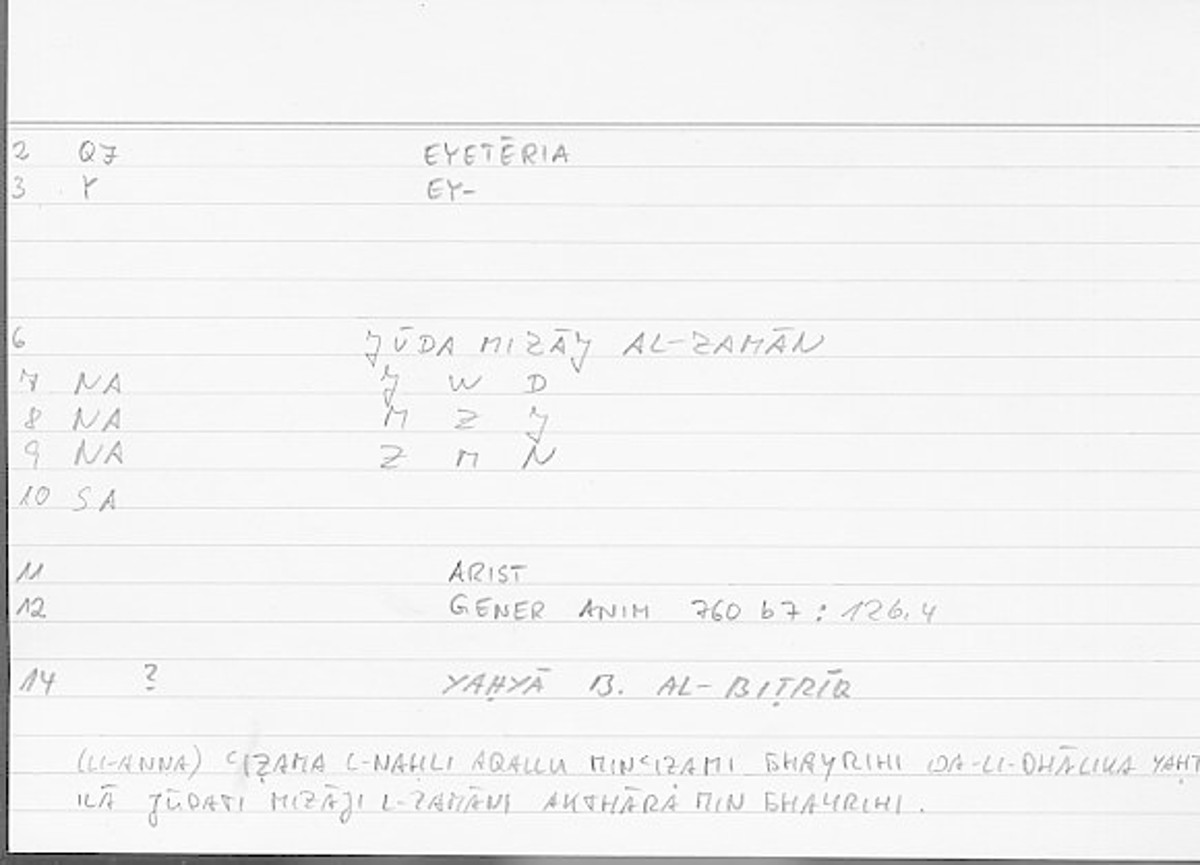 2 QJ EYETĒRIA
3 Y EY-
6 JŪDA MIZĀJ AL-ZAMĀN
7 NA J W D
8 NA M Z J
9 NA Z M N
10 SA
11 ARIST
12 GENER ANIM 760 b7 : 126.4
14 ? YAḤYĀ B. AL-BIṬRĪQ
(LI-ANNA) ʿIẒAMA L-NAḤLI AQALLU MIN ʿIẒAMI GHAYRIHI WA-LI-DHĀLIKA YAḤT
ILĀ JŪDATI MIZĀJI L-ZAMĀNI AKTHĀRA MIN GHAYRIHI.